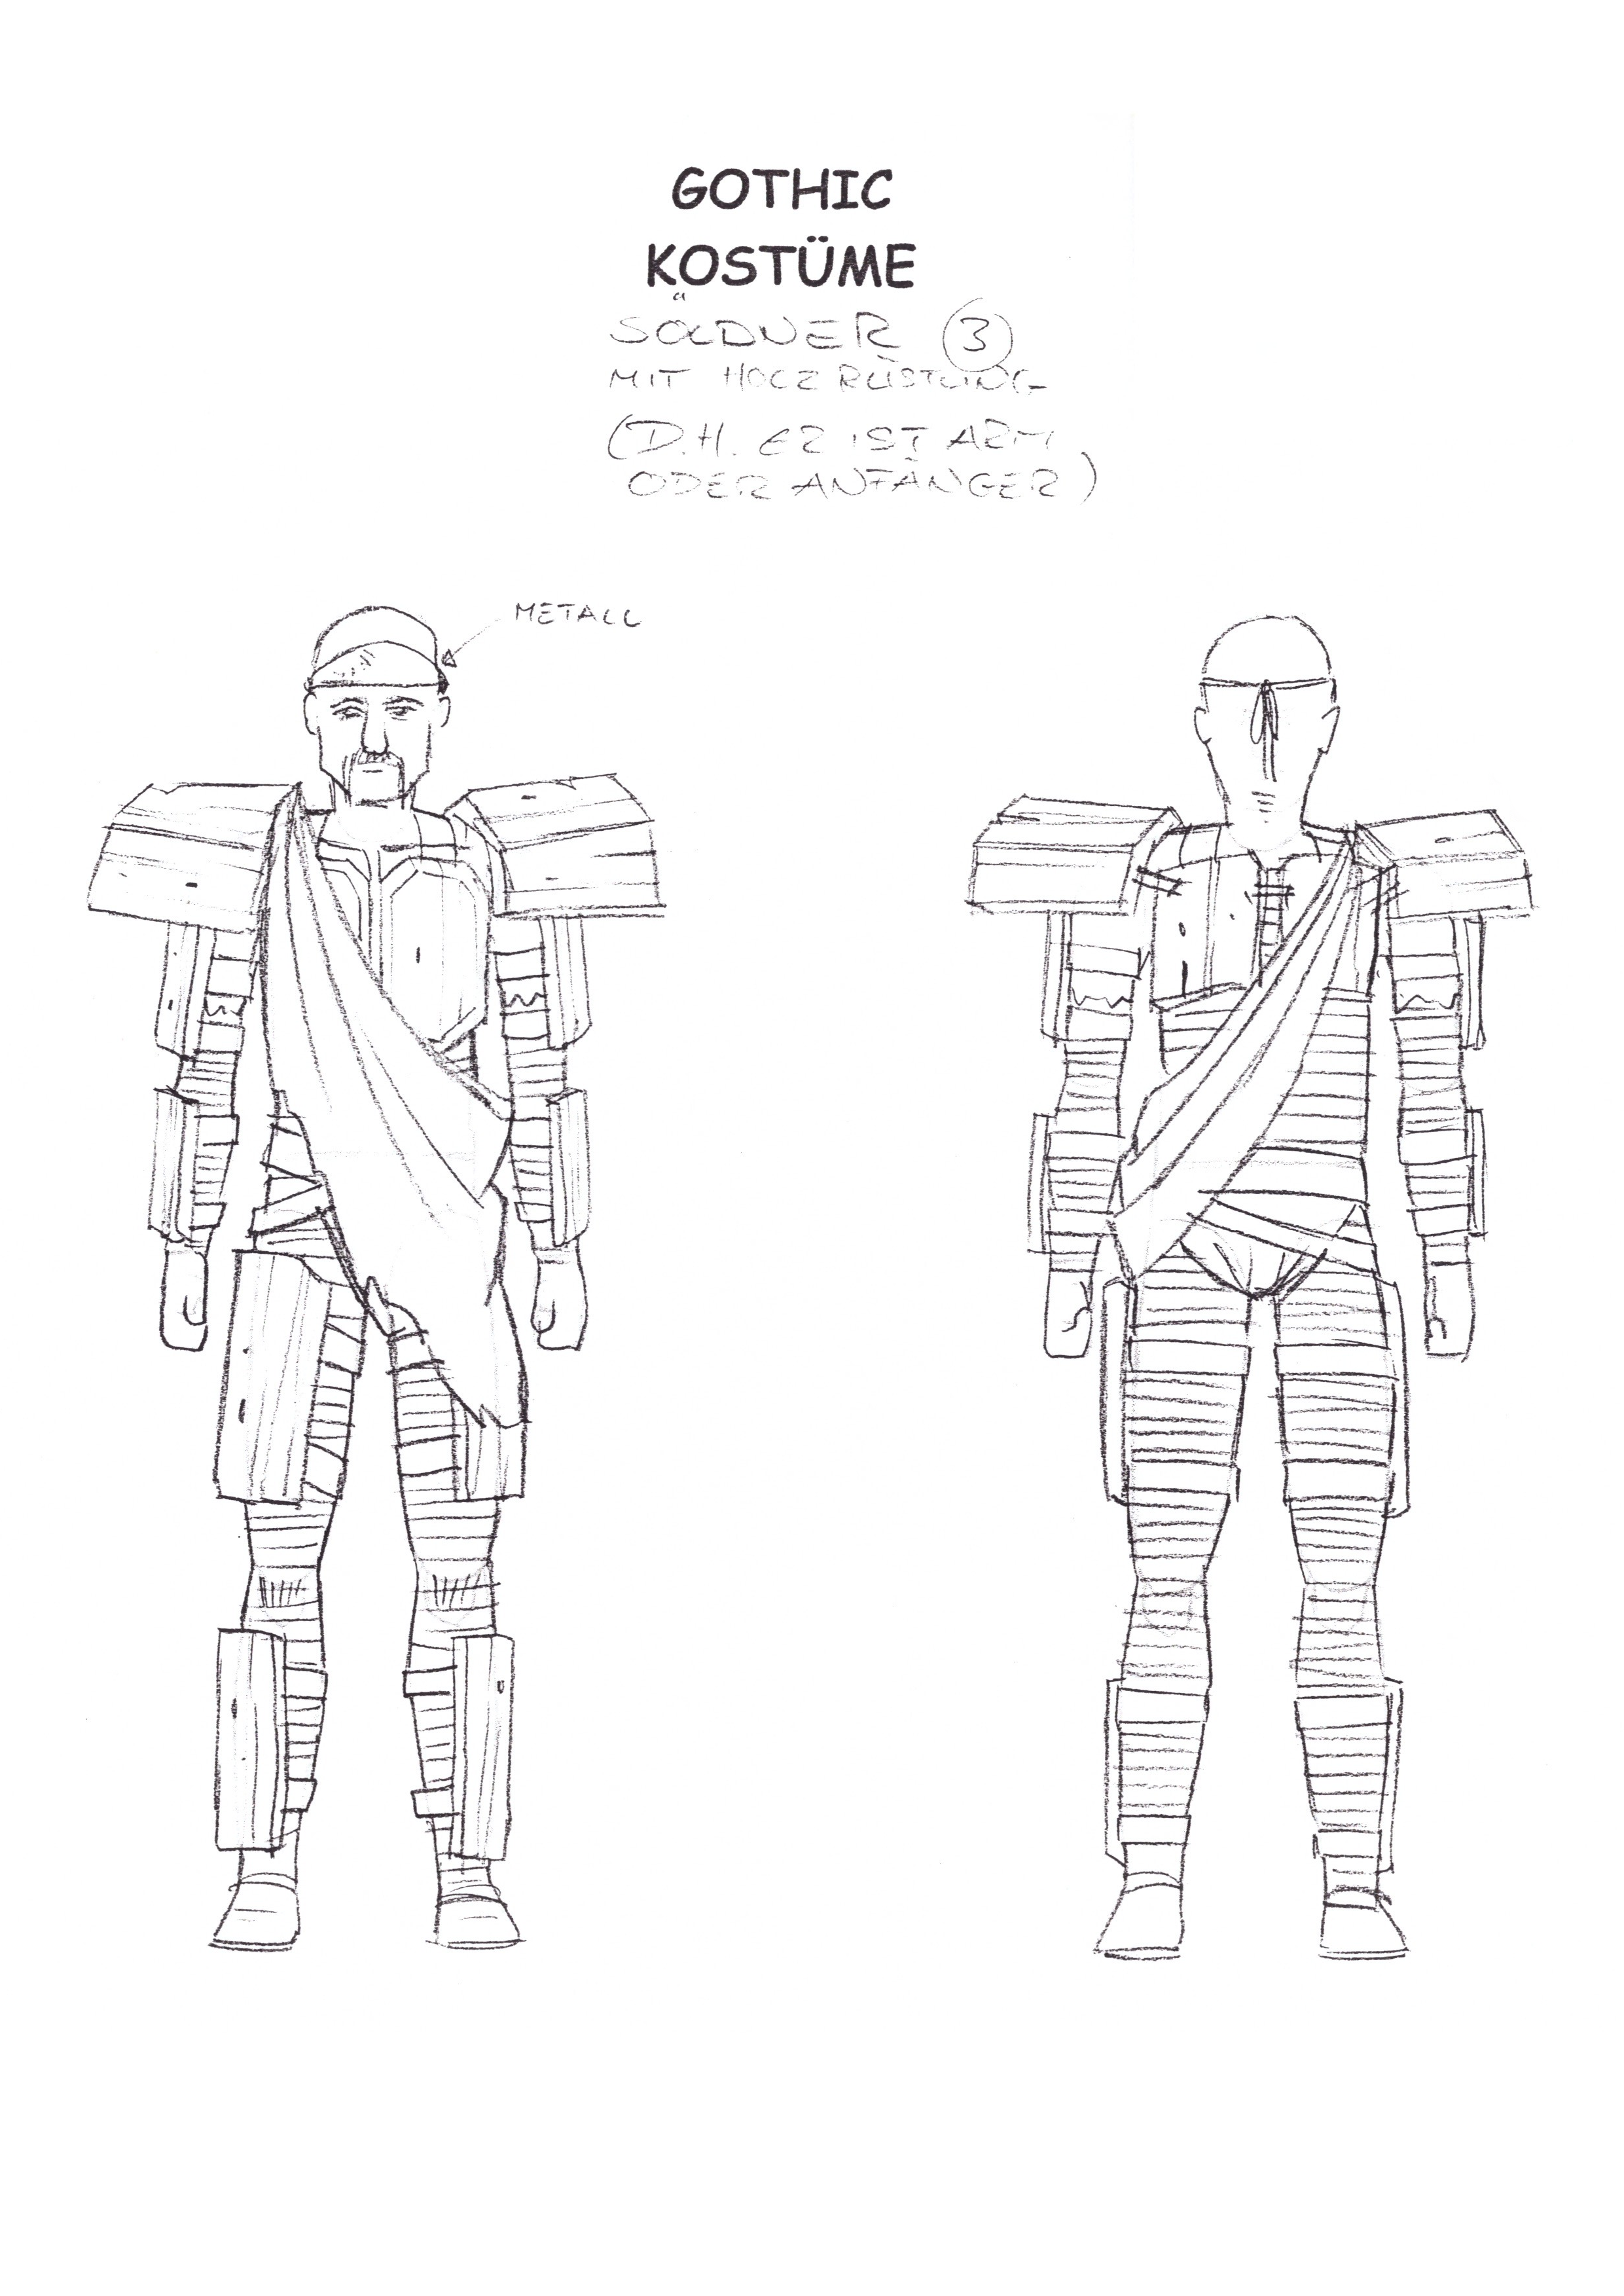 GOTHIC
KOSTÜME
SÖLDNER 3
MIT HOLZRÜSTUNG
(D.H. ER IST ARM
ODER ANFÄNGER)
METALL